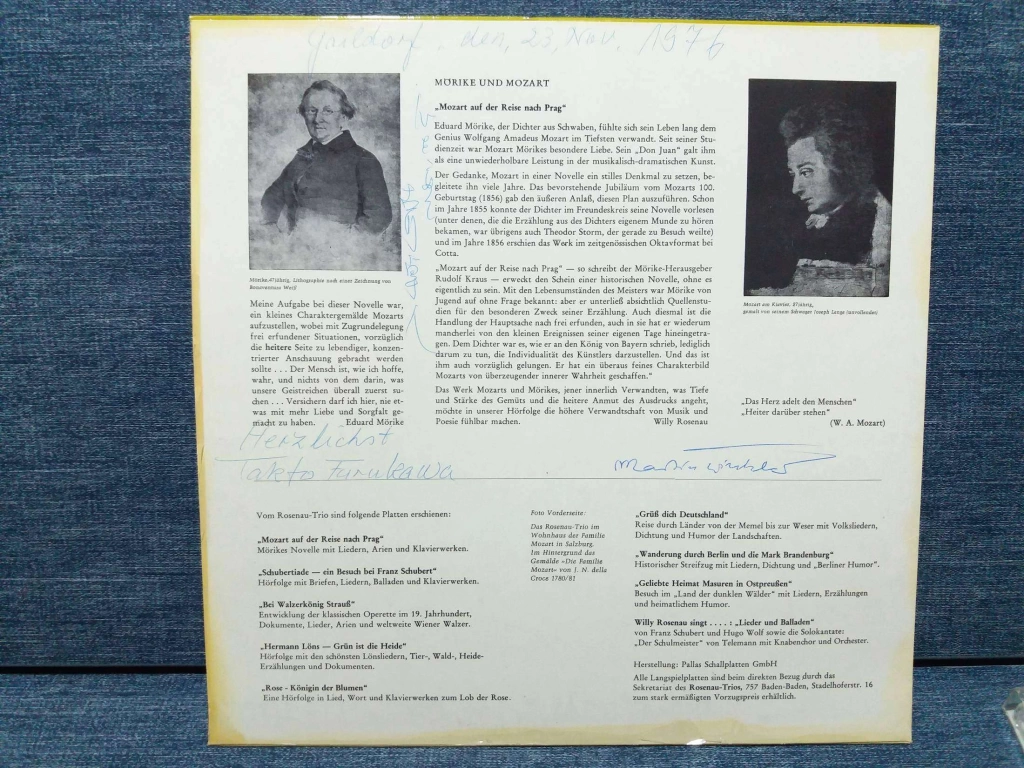 Gaildorf, den, 23, Nov. 1976
MÖRIKE UND MOZART
„Mozart auf der Reise nach Prag“
Eduard Mörike, der Dichter aus Schwaben, fühlte sich sein Leben lang dem
Genius Wolfgang Amadeus Mozart im Tiefsten verwandt. Seit seiner Stu-
dienzeit war Mozart Mörikes besondere Liebe. Sein „Don Juan“ galt ihm
als eine unwiederholbare Leistung in der musikalisch-dramatischen Kunst.
Der Gedanke, Mozart in einer Novelle ein stilles Denkmal zu setzen, be-
gleitete ihn viele Jahre. Das bevorstehende Jubiläum vom Mozarts 100.
Geburtstag (1856) gab den äußeren Anlaß, diesen Plan auszuführen. Schon
im Jahre 1855 konnte der Dichter im Freundeskreis seine Novelle vorlesen
(unter denen, die die Erzählung aus des Dichters eigenem Munde zu hören
bekamen, war übrigens auch Theodor Storm, der gerade zu Besuch weilte)
und im Jahre 1856 erschien das Werk im zeitgenössischen Oktavformat bei
Cotta.
„Mozart auf der Reise nach Prag“ — so schreibt der Mörike-Herausgeber
Rudolf Kraus — erweckt den Schein einer historischen Novelle, ohne es
eigentlich zu sein. Mit den Lebensumständen des Meisters war Mörike von
Jugend auf ohne Frage bekannt: aber er unterließ absichtlich Quellenstu-
dien für den besonderen Zweck seiner Erzählung. Auch diesmal ist die
Handlung der Hauptsache nach frei erfunden, auch in sie hat er wiederum
mancherlei von den kleinen Ereignissen seiner eigenen Tage hineingetra-
gen. Dem Dichter war es, wie er an den König von Bayern schrieb, lediglich
darum zu tun, die Individualität des Künstlers darzustellen. Und das ist
ihm auch vorzüglich gelungen. Er hat ein überaus feines Charakterbild
Mozarts von überzeugender innerer Wahrheit geschaffen.“
Das Werk Mozarts und Mörikes, jener innerlich Verwandten, was Tiefe
und Stärke des Gemüts und die heitere Anmut des Ausdrucks angeht,
möchte in unserer Hörfolge die höhere Verwandtschaft von Musik und
Poesie fühlbar machen. Willy Rosenau
Mörike, 47jährig, Lithographie nach einer Zeichnung von
Bonaventura Weiß
Meine Aufgabe bei dieser Novelle war,
ein kleines Charaktergemälde Mozarts
aufzustellen, wobei mit Zugrundelegung
frei erfundener Situationen, vorzüglich
die heitere Seite zu lebendiger, konzen-
trierter Anschauung gebracht werden
sollte . . . Der Mensch ist, wie ich hoffe,
wahr, und nichts von dem darin, was
unsere Geistreichen überall zuerst su-
chen . . . Versichern darf ich hier, nie et-
was mit mehr Liebe und Sorgfalt ge-
macht zu haben. Eduard Mörike
Mozart am Klavier, 27jährig,
gemalt von seinem Schwager Joseph Lange (unvollendet)
„Das Herz adelt den Menschen“
„Heiter darüber stehen“
(W. A. Mozart)
Herzlichst
Takto Furukawa
Vom Rosenau-Trio sind folgende Platten erschienen:
„Mozart auf der Reise nach Prag“
Mörikes Novelle mit Liedern, Arien und Klavierwerken.
„Schubertiade — ein Besuch bei Franz Schubert“
Hörfolge mit Briefen, Liedern, Balladen und Klavierwerken.
„Bei Walzerkönig Strauß“
Entwicklung der klassischen Operette im 19. Jahrhundert,
Dokumente, Lieder, Arien und weltweite Wiener Walzer.
„Hermann Löns — Grün ist die Heide“
Hörfolge mit den schönsten Lönsliedern, Tier-, Wald-, Heide-
Erzählungen und Dokumenten.
„Rose - Königin der Blumen“
Eine Hörfolge in Lied, Wort und Klavierwerken zum Lob der Rose.
Foto Vorderseite:
Das Rosenau-Trio im
Wohnhaus der Familie
Mozart in Salzburg.
Im Hintergrund das
Gemälde »Die Familie
Mozart« von J. N. della
Croce 1780/81
„Grüß dich Deutschland“
Reise durch Länder von der Memel bis zur Weser mit Volksliedern,
Dichtung und Humor der Landschaften.
„Wanderung durch Berlin und die Mark Brandenburg“
Historischer Streifzug mit Liedern, Dichtung und „Berliner Humor“.
„Geliebte Heimat Masuren in Ostpreußen“
Besuch im „Land der dunklen Wälder“ mit Liedern, Erzählungen
und heimatlichem Humor.
Willy Rosenau singt . . . . : „Lieder und Balladen“
von Franz Schubert und Hugo Wolf sowie die Solokantate:
„Der Schulmeister“ von Telemann mit Knabenchor und Orchester.
Herstellung: Pallas Schallplatten GmbH
Alle Langspielplatten sind beim direkten Bezug durch das
Sekretariat des Rosenau-Trios, 757 Baden-Baden, Stadelhoferstr. 16
zum stark ermäßigten Vorzugspreis erhältlich.